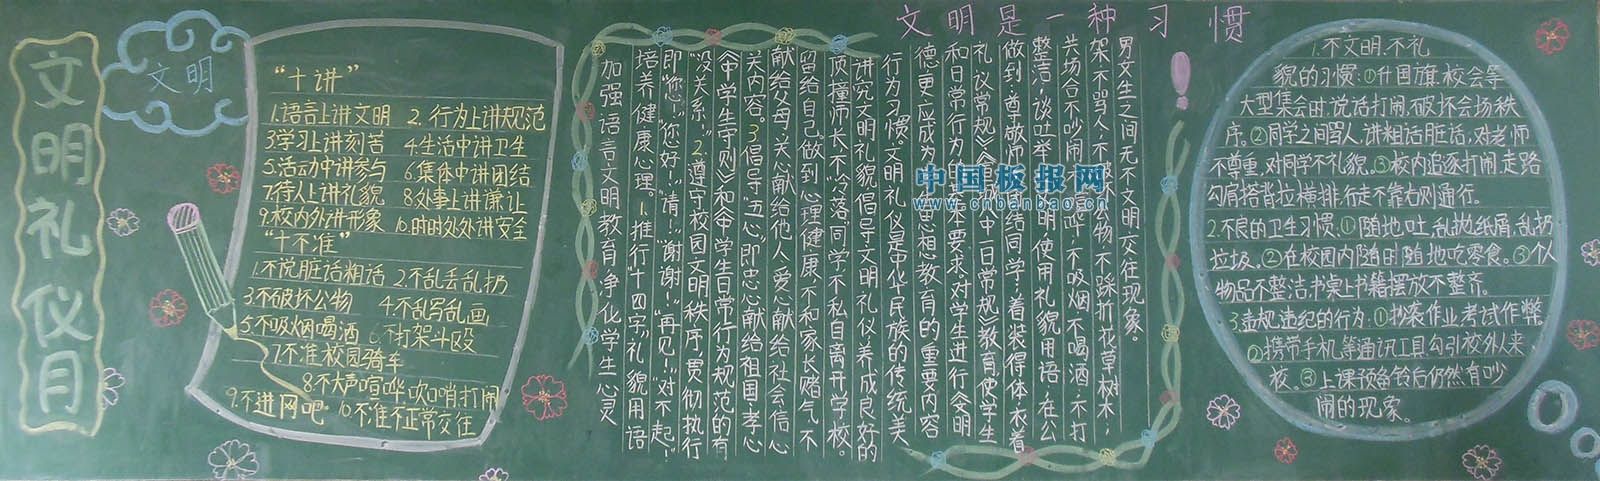 文明礼仪月
文明
“十讲”
1.语言上讲文明 2.行为上讲规范
3学习上讲刻苦 4生活中讲卫生
5.活动中讲参与 6.集体中讲团结
7.待人上讲礼貌 8处事上讲谦让
9.校内外讲形象 10.时时处处讲安全
“十不准”
1.不说脏话粗话 2.不乱丢乱扔
3.不破坏公物 4.不乱写乱画
5.不吸烟喝酒 6.不打架斗殴
7.不准校园骑车
8.不大声喧哗吹口哨打闹
9.不进网吧 10.不准不正常交往
文明是一种习惯!
加强语言文明教育,净化学生心灵
培养健康心理。1.推行“十四字”礼貌用语
即“您!”“您好!”“请!”“谢谢!”“再见!”“对不起!”
“没关系。”2.遵守校园文明秩序,贯彻执行
《中学生守则》和《中学生日常行为规范》的有
关内容。3倡导“五心”即忠心献给祖国,孝心
献给父母,关心献给他人,爱心献给社会,信心
留给自己。做到心理健康,不和家长赌气,不
顶撞师长,不冷落同学,不私自离开学校。
讲究文明礼貌,倡导文明礼仪,养成良好的
行为习惯。文明礼仪是中华民族的传统美
德,更应成为思想教育的重要内容
和日常行为的基本要求,对学生进行《文明
礼仪常规》《中一日常规》教育,使学生
做到:尊敬师长,团结同学,着装得体,衣着
整洁,谈吐举止文明,使用礼貌用语,在公
共场合不吵闹喧哗,不吸烟不喝酒,不打
架不骂人,不破坏公物,不踩折花草树木,
男女生之间无不文明交往现象。
中国板报网
www.cnbanbao.cn
1.不文明、不礼
貌的习惯:①升国旗、校会等
大型集会时,说话打闹,破坏会场秩
序。②同学之间骂人,讲粗话脏话,对老师
不尊重,对同学不礼貌。③校内追逐打闹,走路
勾肩搭背拉横排,行走不靠右则通行。
2.不良的卫生习惯。①随地吐、乱抛纸屑,乱扔
垃圾。②在校园内随时随地吃零食。③个人
物品不整洁,书桌上书籍摆放不整齐。
3.违规违纪的行为:①抄袭作业,考试作弊
②携带手机等通讯工具,勾引校外人来
校。③上课预备铃后仍然有吵
闹的现象。